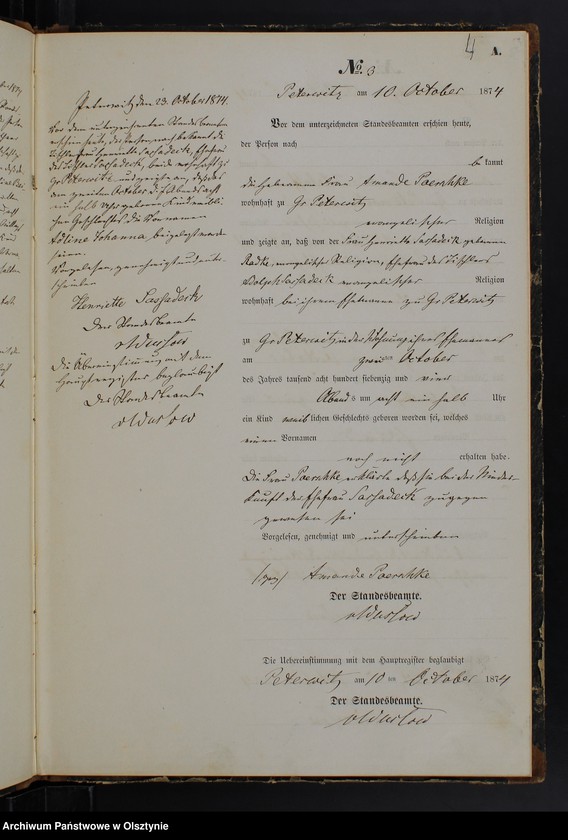 4 A.
No. 3
Peterwitz am 10. October 1874
Vor dem unterzeichneten Standesbeamten erschien heute,
der Person nach
be kannt
die Hebamme Frau Amande Poerschke
wohnhaft zu Gr Peterwitz
evangelischer Religion
und zeigte an, daß von der Frau Henriette Sassadeck geborenen
Radtke, evangelischer Religion, Ehefrau des Tischlers
Adolph Sassadeck evangelischer Religion
wohnhaft bei ihrem Ehemanne zu Gr Peterwitz
zu Gr Peterwitz in der Wohnung ihres Ehemannes
am zweiten October
des Jahres tausend acht hundert siebenzig und vier
Abends um acht ein halb Uhr
ein Kind weiblichen Geschlechts geboren worden sei, welches
einen Vornamen
noch nicht erhalten habe.
Die Frau Poerschke erklärte daß sie bei der Nieder-
kunft der Ehefrau Sassadeck zugegen
gewesen sei
Vorgelesen, genehmigt und unterschrieben
(gez) Amande Poerschke
Der Standesbeamte.
Die Uebereinstimmung mit dem Hauptregister beglaubigt
Peterwitz am 10 ten October 1874
Der Standesbeamte.
Peterwitz den 23. October 1874.
Vor dem unterzeichneten Standesbeamten
erschien heute, der Person nach bekannt die
Henriette Sassadeck, Ehefrau
des Sassadeck, beide wohnhaft zu
Gr Peterwitz und zeigte an, daß das
am zweiten October d. Abends acht
ein halb Uhr geborene Kind weibli-
chen Geschlechts die Vornamen
Adline Johanna, beigelegt worden
seien.
Vorgelesen, genehmigt und unter-
schrieben
Henriette Sassadeck
Der Standesbeamte
Die Übereinstimmung mit dem
Hauptregister beglaubigt
Der Standesbeamte
Archiwum Państwowe w Olsztynie